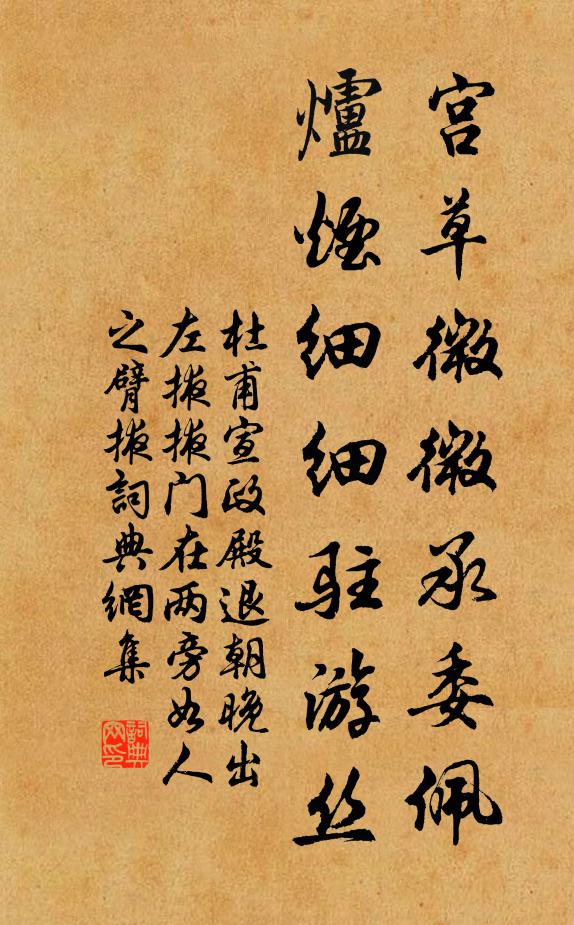 宫草微微承委佩
爐煙细细駐游丝
杜甫宣政殿退朝晚出
左掖掖门在两旁如人
之臂掖詞典網集
詞典
网印